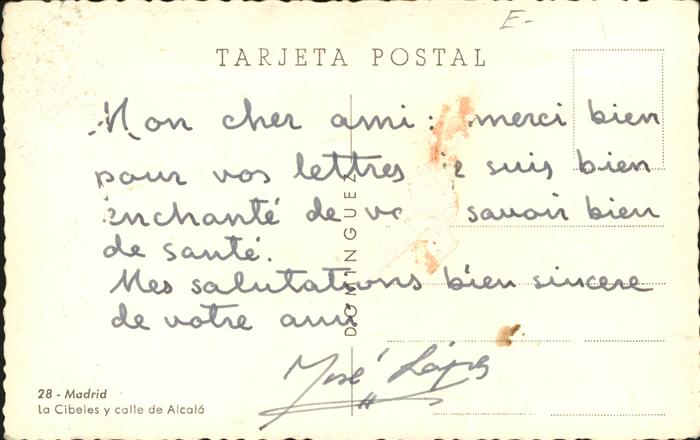 E-
TARJETA POSTAL
Mon cher ami: merci bien
pour vos lettres suis bien
enchanté de savoir bien
de santé.
Mes salutations bien sincere
de votre ami
José López
DOMINGUEZ
28 - Madrid
La Cibeles y calle de Alcalá